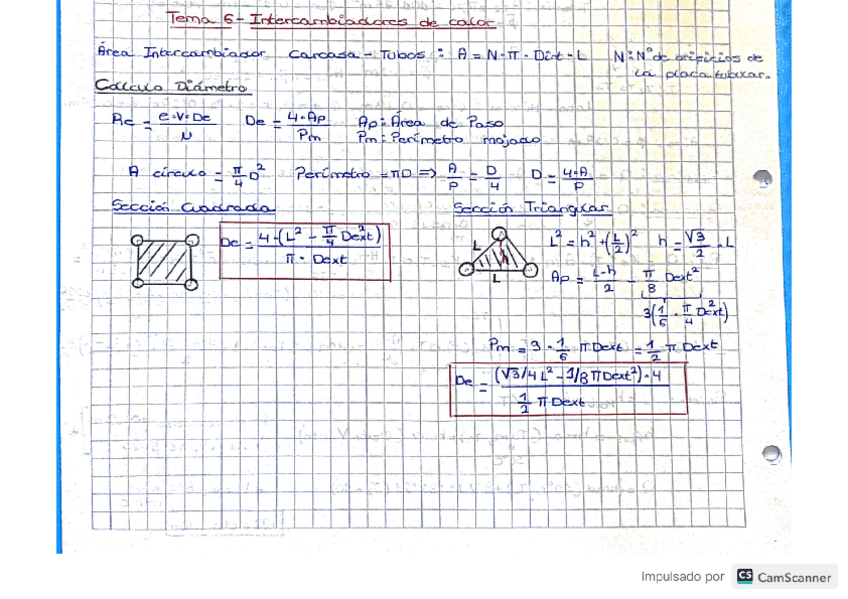 Tema 6 - Intercambiadores de calor
Área Intercambiador Carcasa - Tubos : A = N · π · Dint · L N: Nº de orificios de
la placa tubular.
Calculo Diámetro
Re = ρ·V·De / μ De = 4·Ap / Pm Ap: Área de Paso
Pm: Perímetro mojado
A círculo = π/4 D² Perímetro = πD => A/P = D/4 D = 4·A / P
Sección Cuadrada Sección Triangular
De = 4·(L² - π/4 Dext²) / π · Dext
L L² = h² + (L/2)² h = √3/2 · L
h
L Ap = L·h / 2 - π/8 Dext²
3(1/6 · π/4 Dext²)
Pm = 3 · 1/6 π Dext = 1/2 π Dext
De = (√3/4 L² - 1/8 π Dext²) · 4 / 1/2 π Dext
Impulsado por CS CamScanner